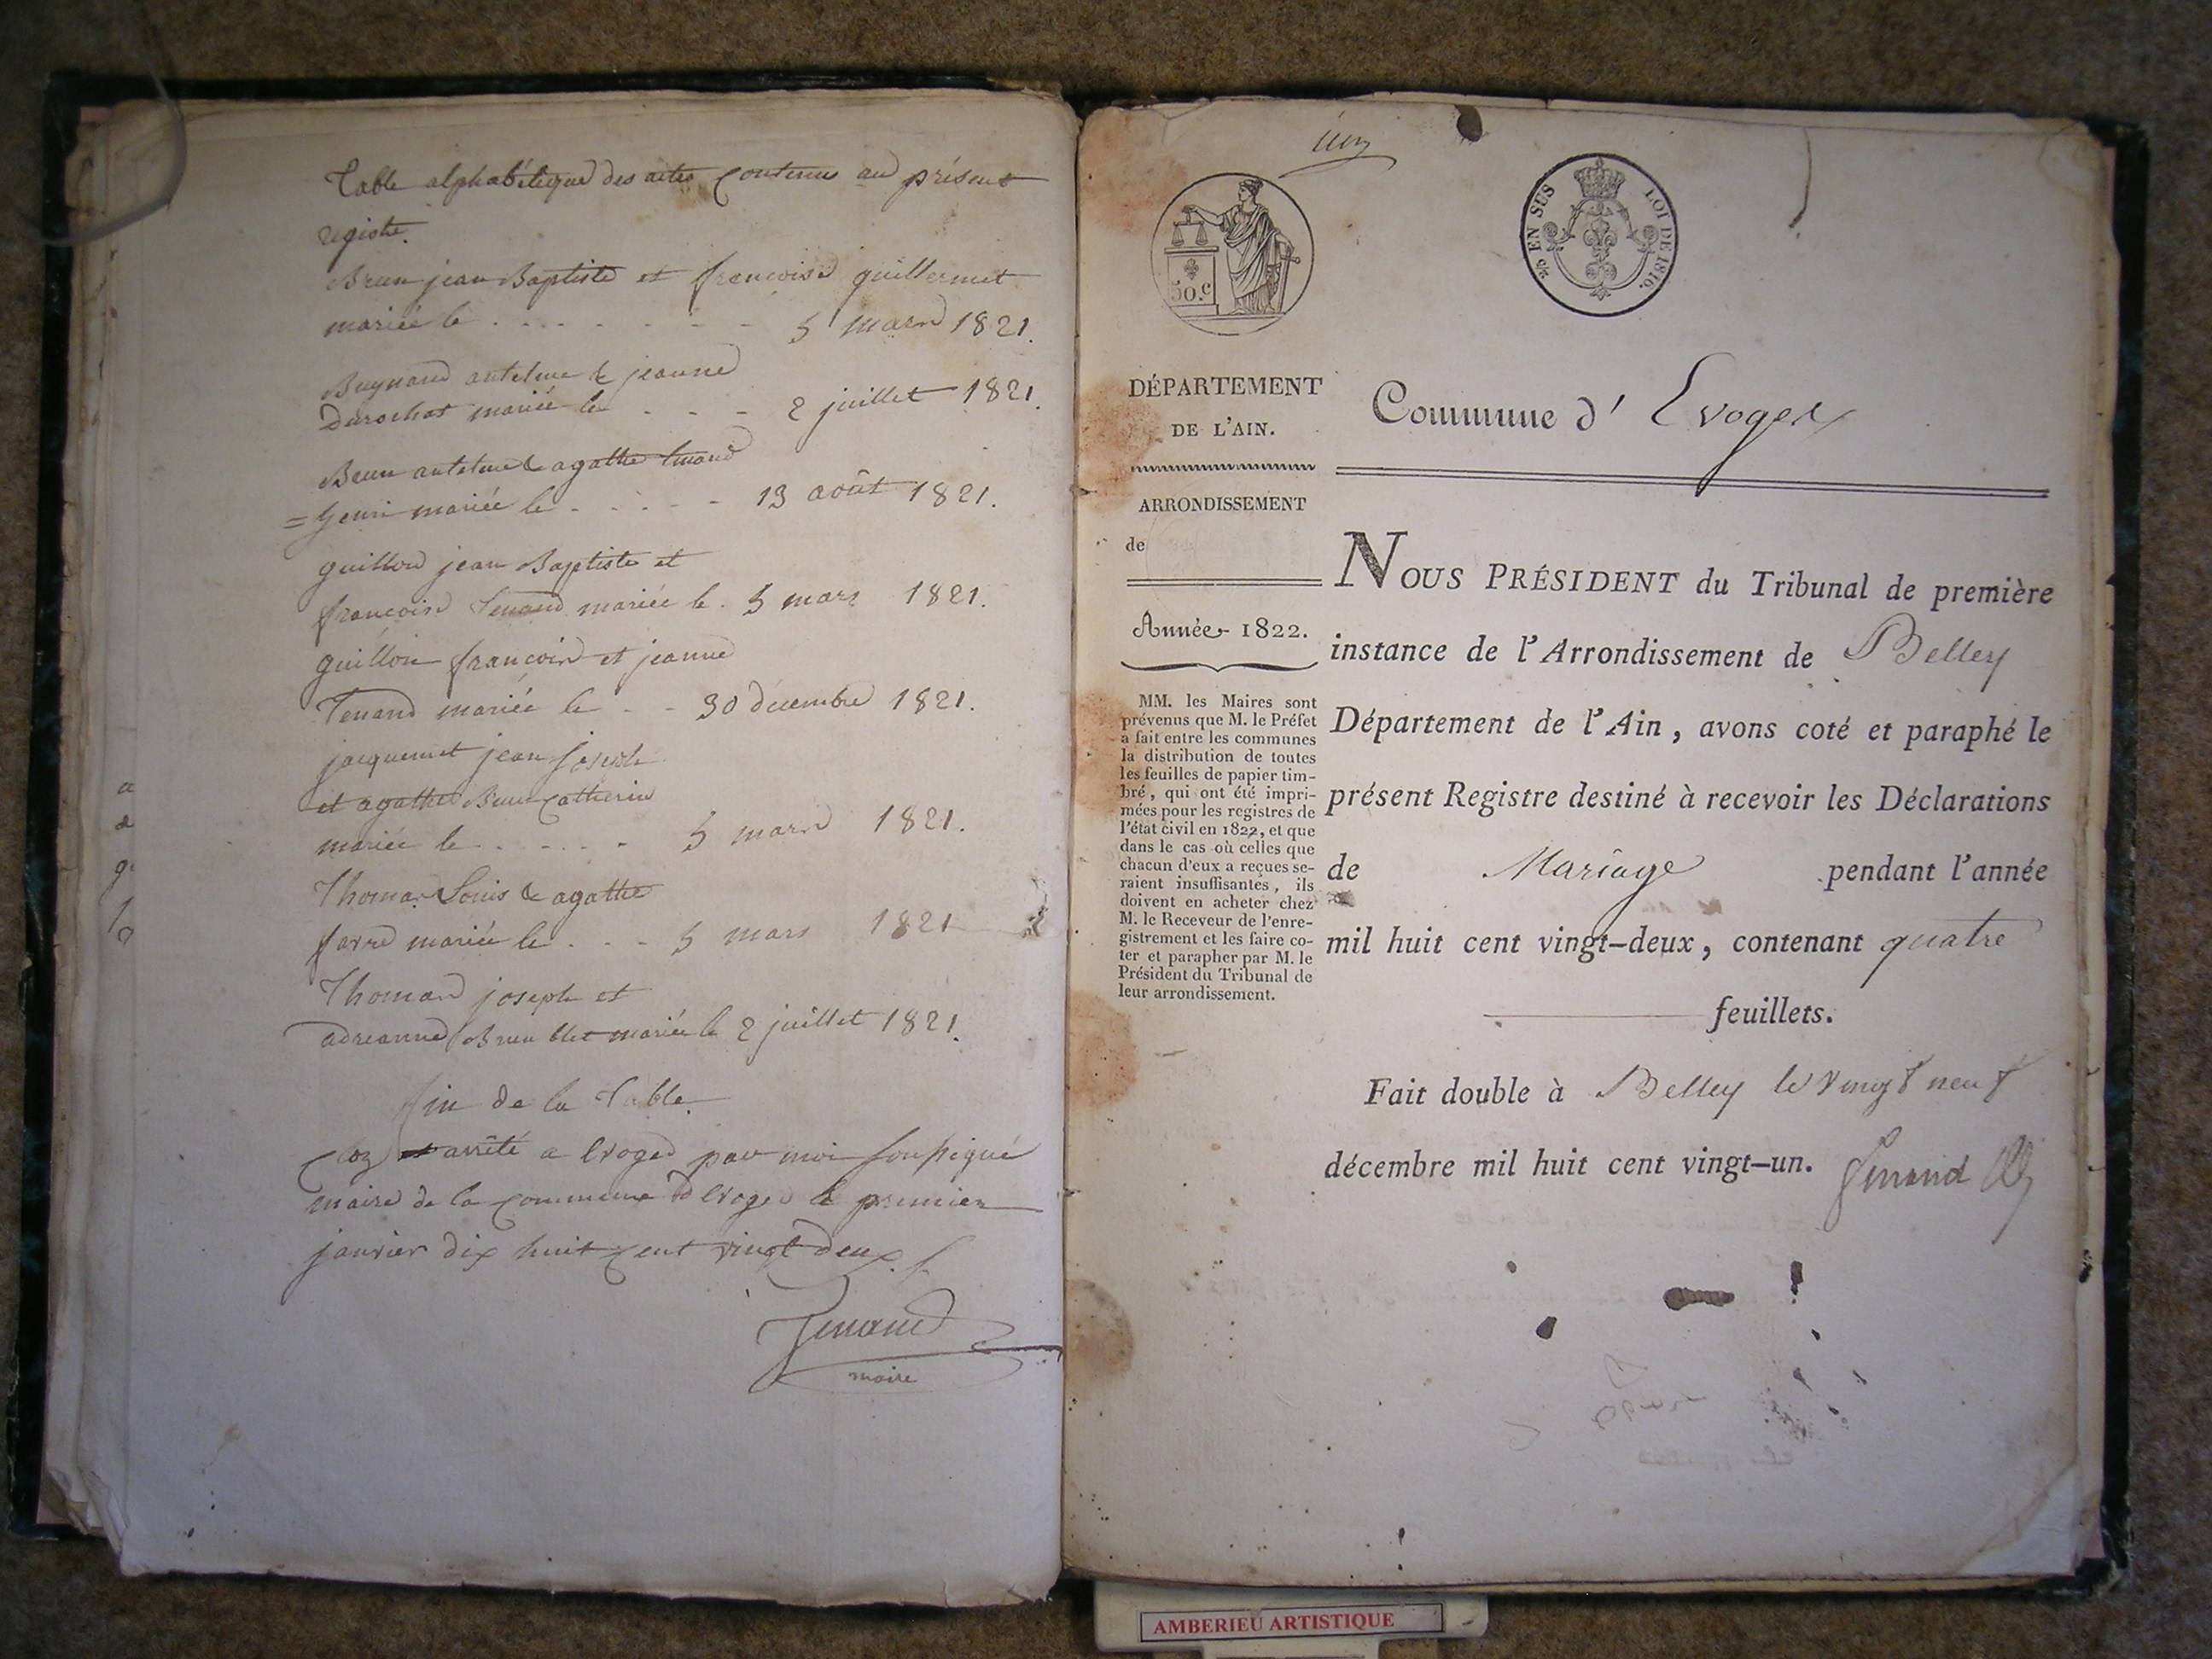 Table alphabétique des actes contenus au présent
registre.
Brun jean Baptiste et françoise guillermet
mariée le . . . . . . . 5 mars 1821.
Buynand antelme & jeanne
Durochat mariée le . . . 2 juillet 1821.
Brun antelme & agathe tenand
= henri mariée le . . . . . 13 août 1821.
guillon jean Baptiste et
françoise Tenand mariée le . 5 mars 1821.
guillon françois et jeanne
Tenand mariée le . . 30 decembre 1821.
jacquemet jean joseph
et agathe Brun Catherine
mariée le . . . . . 5 mars 1821.
Thomas Louis & agathe
favre mariée le . . . 5 mars 1821
Thomas joseph et
adreanne Brun mariée le 2 juillet 1821.
fin de la Table.
Cloz et arrêté a Evoges par moi soussigné
maire de la commune d'Evoges le premier
janvier dix huit cent vingt deux
Tenand
maire
a
g
50.c
EN SUS
LOI DE 1816.
DÉPARTEMENT
DE L'AIN.
ARRONDISSEMENT
de
Année 1822.
MM. les Maires sont
prévenus que M. le Préfet
a fait entre les communes
la distribution de toutes
les feuilles de papier tim-
bré, qui ont été impri-
mées pour les registres de
l'état civil en 1822, et que
dans le cas où celles que
chacun d'eux a reçues se-
raient insuffisantes, ils
doivent en acheter chez
M. le Receveur de l'enre-
gistrement et les faire co-
ter et parapher par M. le
Président du Tribunal de
leur arrondissement.
Commune d' Evoges
NOUS PRÉSIDENT du Tribunal de première
instance de l'Arrondissement de Belley
Département de l'Ain, avons coté et paraphé le
présent Registre destiné à recevoir les Déclarations
de Mariage pendant l'année
mil huit cent vingt-deux, contenant quatre
feuillets.
Fait double à Belley le vingt neuf
décembre mil huit cent vingt-un.
AMBERIEU ARTISTIQUE